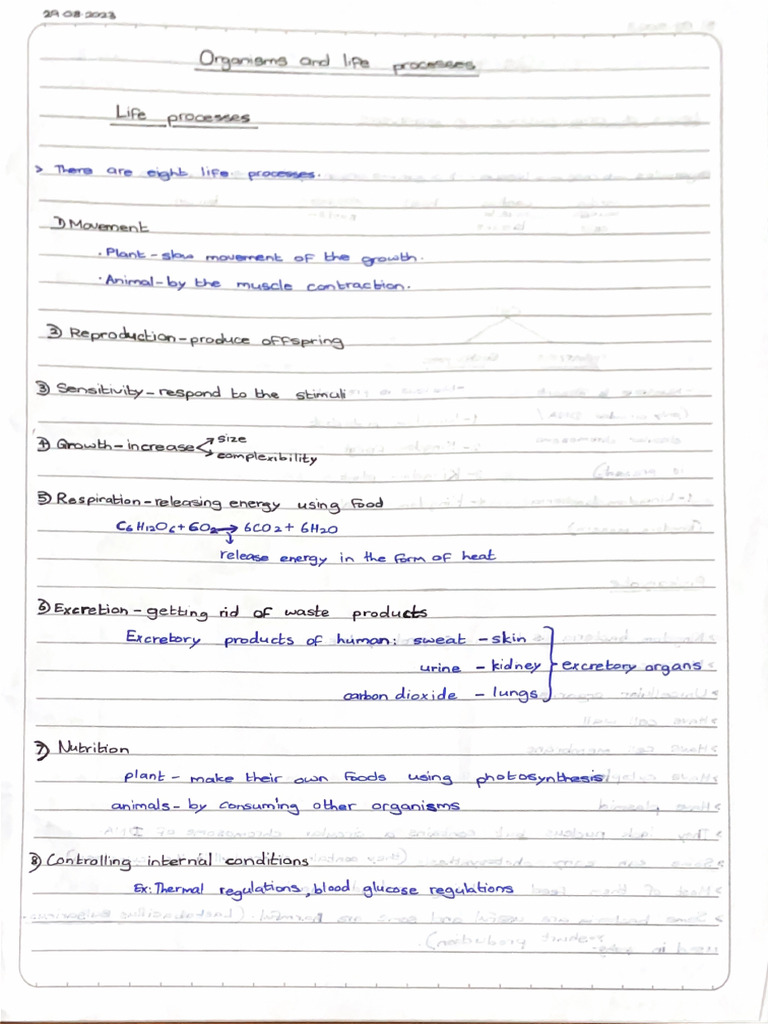 29.08.2023
Organisms and life processes
Life processes
> There are eight life processes.
1) Movement
· Plant - slow movement of the growth.
· Animal - by the muscle contraction.
2) Reproduction - produce offspring
3) Sensitivity - respond to the stimuli
4) Growth - increase size
complexibility
5) Respiration - releasing energy using food
C6H12O6 + 6O2 → 6CO2 + 6H2O
release energy in the form of heat
6) Excretion - getting rid of waste products
Excretory products of human: sweat - skin
urine - kidney excretory organs
carbon dioxide - lungs
7) Nutrition
plant - make their own foods using photosynthesis.
animals - by consuming other organisms
8) Controlling internal conditions
Ex: Thermal regulations, blood glucose regulations